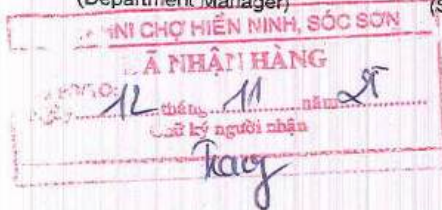 (Department Manager) (S
NI CHỢ HIỀN NINH, SÓC SƠN
Ã NHẬN HÀNG
12 tháng 11 năm 25
ữ ký người nhận
Trang